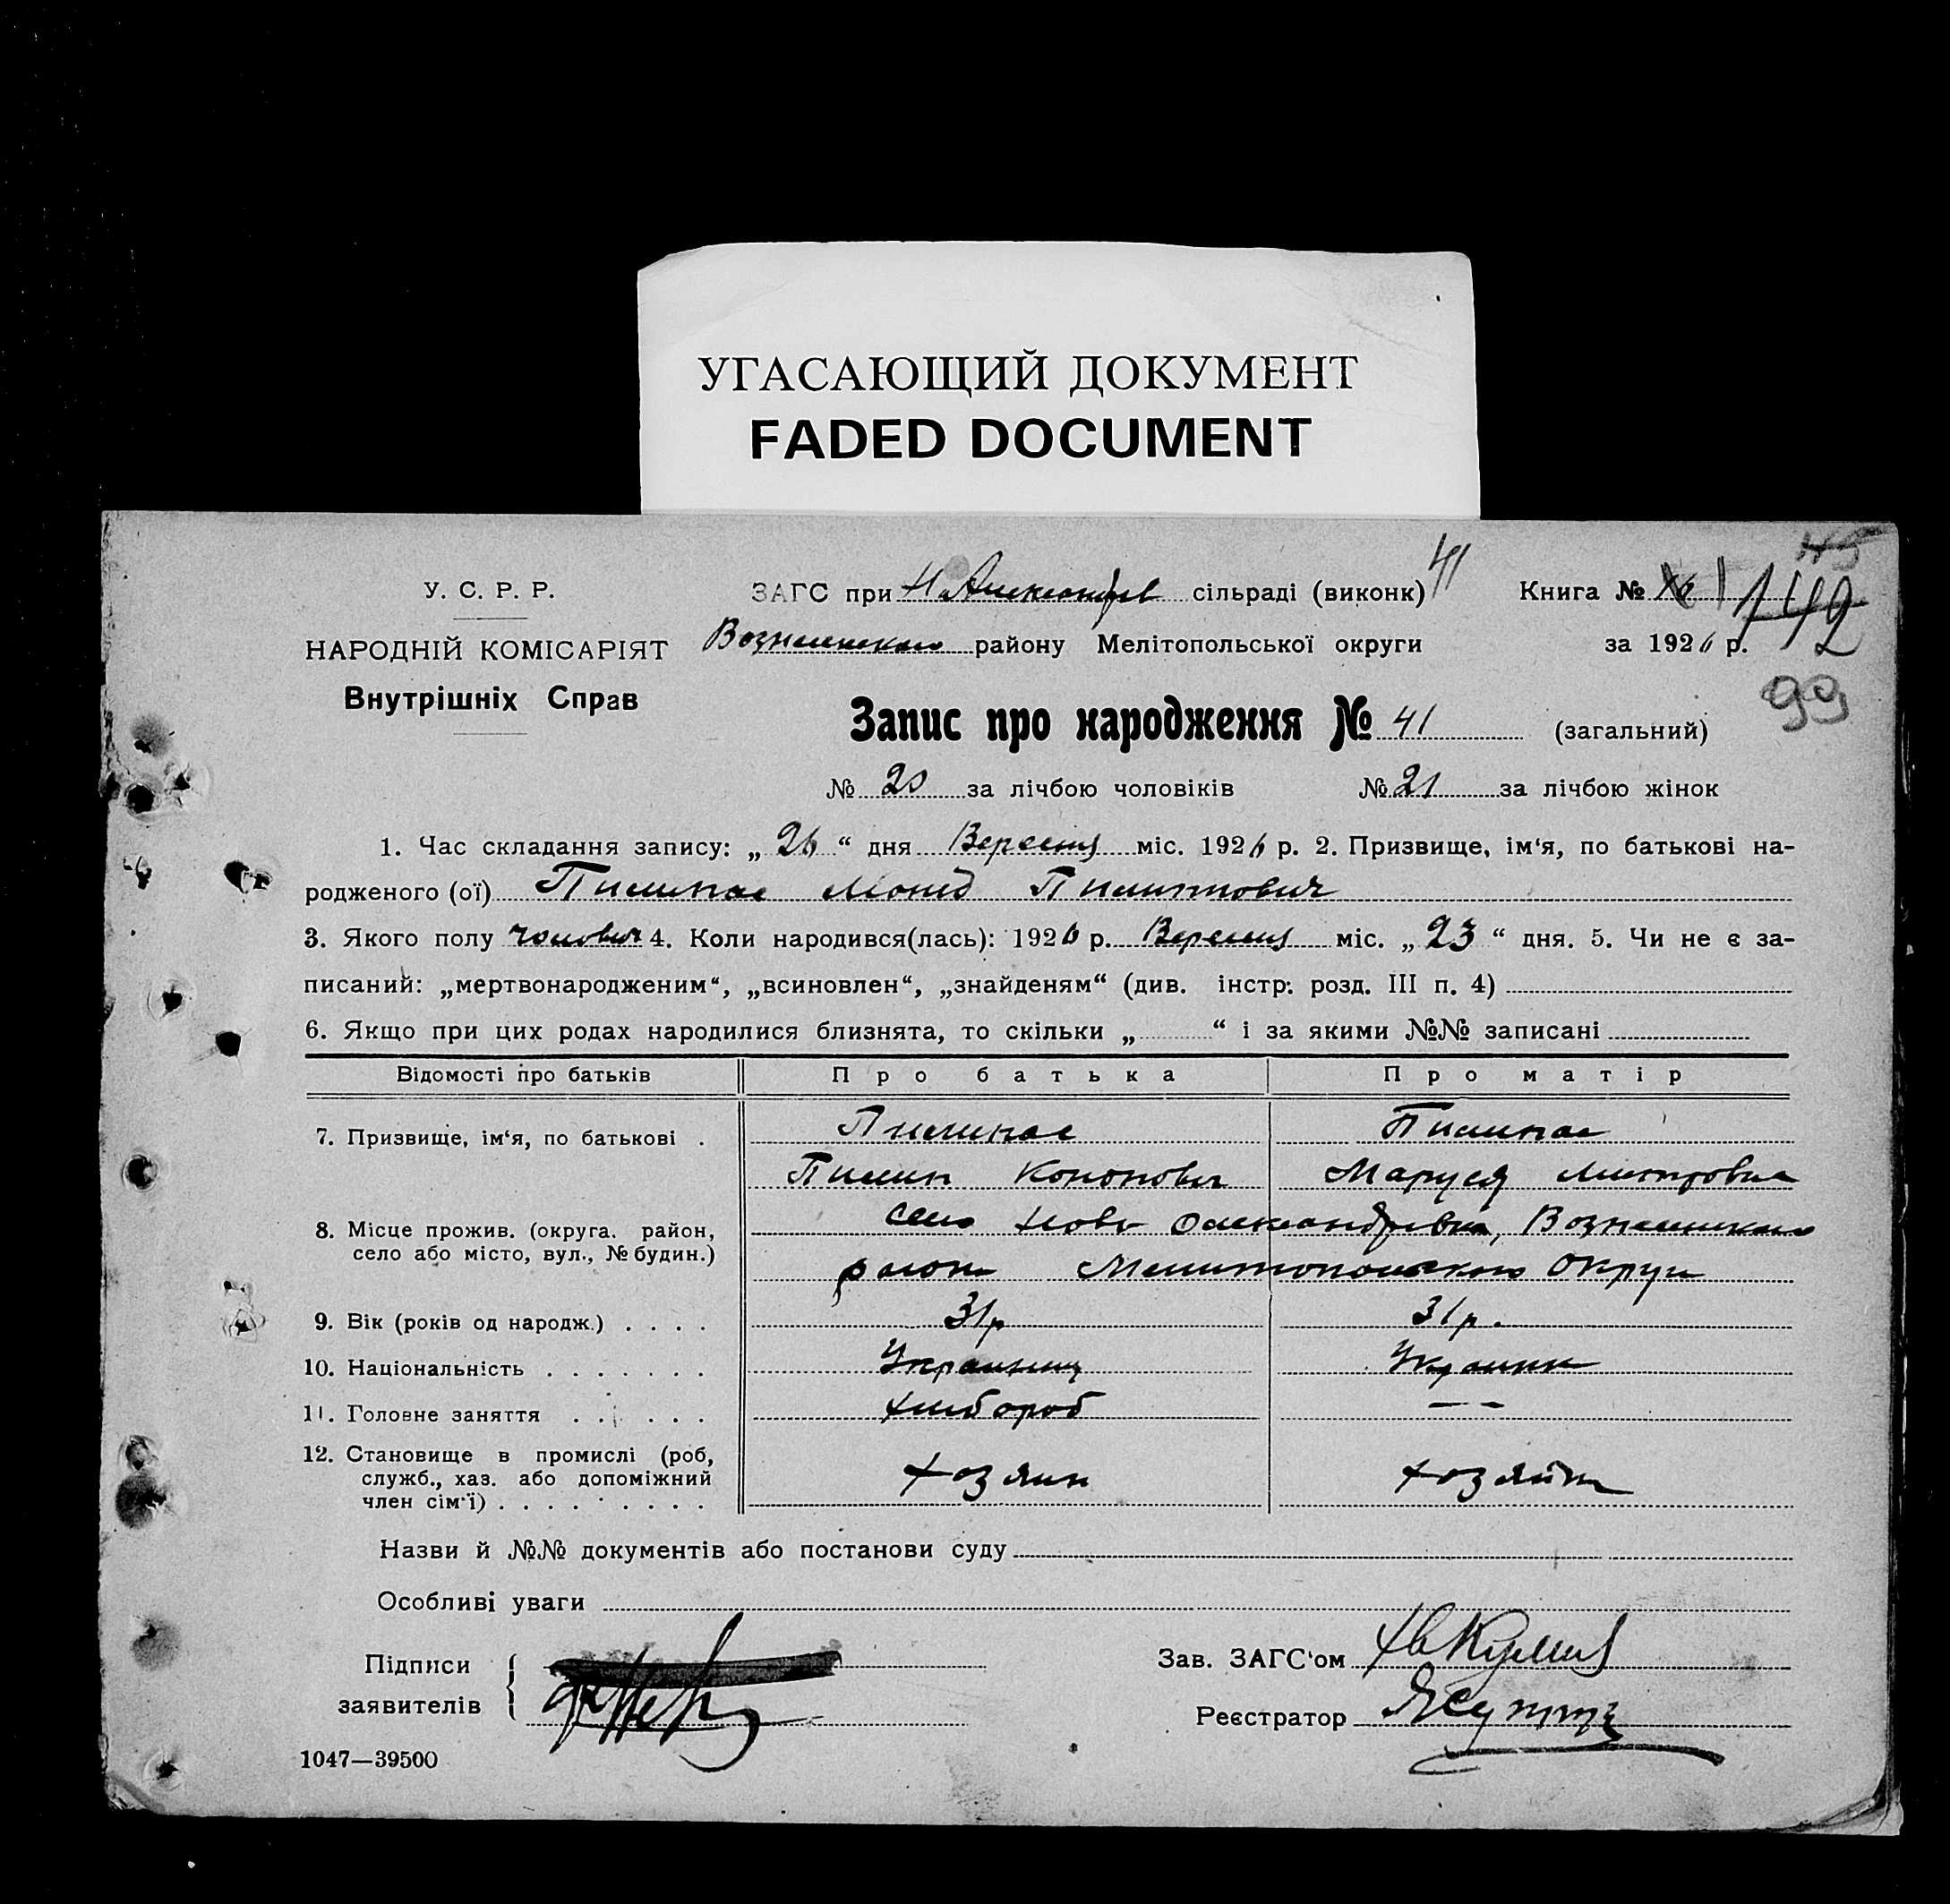 УГАСАЮЩИЙ ДОКУМЕНТ
FADED DOCUMENT
45
У. С. Р. Р.
ЗАГС при Н Александров сільраді (виконк) 41
Книга №
142
НАРОДНІЙ КОМІСАРІЯТ
Вознесенского району Мелітопольської округи
за 1926 р.
Внутрішніх Справ
99
Запис про народження № 41 (загальний)
№ 20 за лічбою чоловіків № 21 за лічбою жінок
1. Час складання запису: „ 26 “ дня Вересня міс. 1926 р. 2. Призвище, ім‘я, по батькові на-
родженого (ої) Пилипас Пилипович
3. Якого полу чоловіч 4. Коли народився(лась): 1926 р. Вересня міс. „ 23 “ дня. 5. Чи не є за-
писаний: „мертвонародженим“, „всиновлен“, „знайденям“ (див. інстр. розд. III п. 4)
6. Якщо при цих родах народилися близнята, то скільки „ “ і за якими №№ записані
Відомості про батьків Про батька Про матір
7. Призвище, ім‘я, по батькові . Пилипас Пилипас
Пилип Кононович Маруся Митровна
8. Місце прожив. (округа. район, село або місто, вул., № будин.) село Ново Олександрівка, Вознесенского
район Мелитопольского Округи
9. Вік (років од народж.) . . . . 31р 31р.
10. Національність . . . . . . . Украинец Украинк
11. Головне заняття . . . . . . Хлібороб — -
12. Становище в промислі (роб,
служб., хаз. або допоміжний
член сім‘ї) . . . . . . . . . Хозяин Хозяйка
Назви й №№ документів або постанови суду
Особливі уваги
Підписи
заявителів
Зав. ЗАГС‘ом
Реєстратор
1047—39500